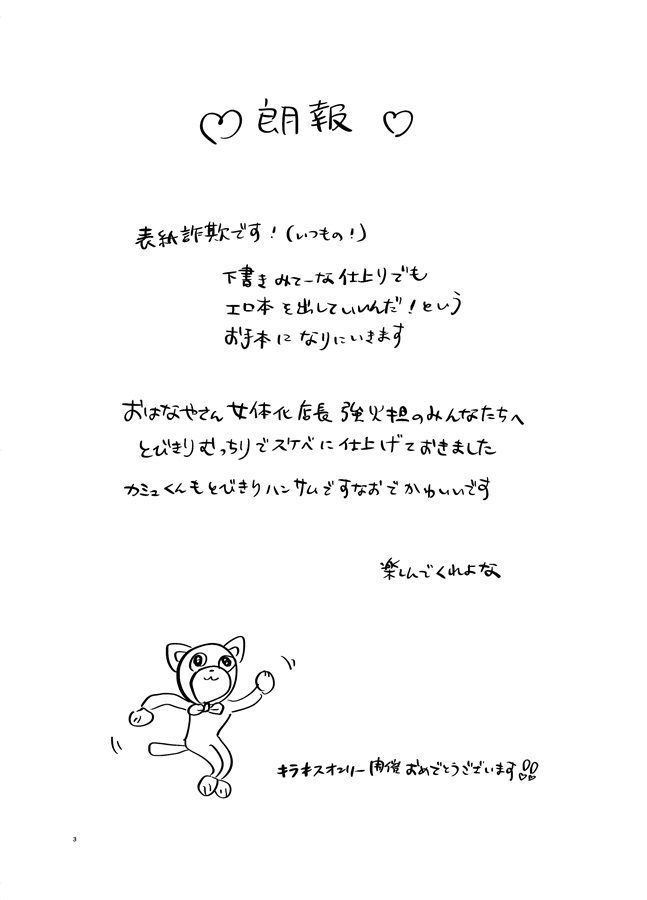 ♡ 朗報 ♡
表紙詐欺です！（いつもの！）
下書きみてーな仕上りでも
エロ本を出していいんだ！という
お手本になりにいきます
おはなやさん 女体化店長 強火担のみんなたちへ
とびきりむっちりでスケベに仕上げておきました
カミュくんもとびきりハンサムですなおでかわいいです
楽しんでくれよな
キラキスオンリー開催おめでとうございます!!
3